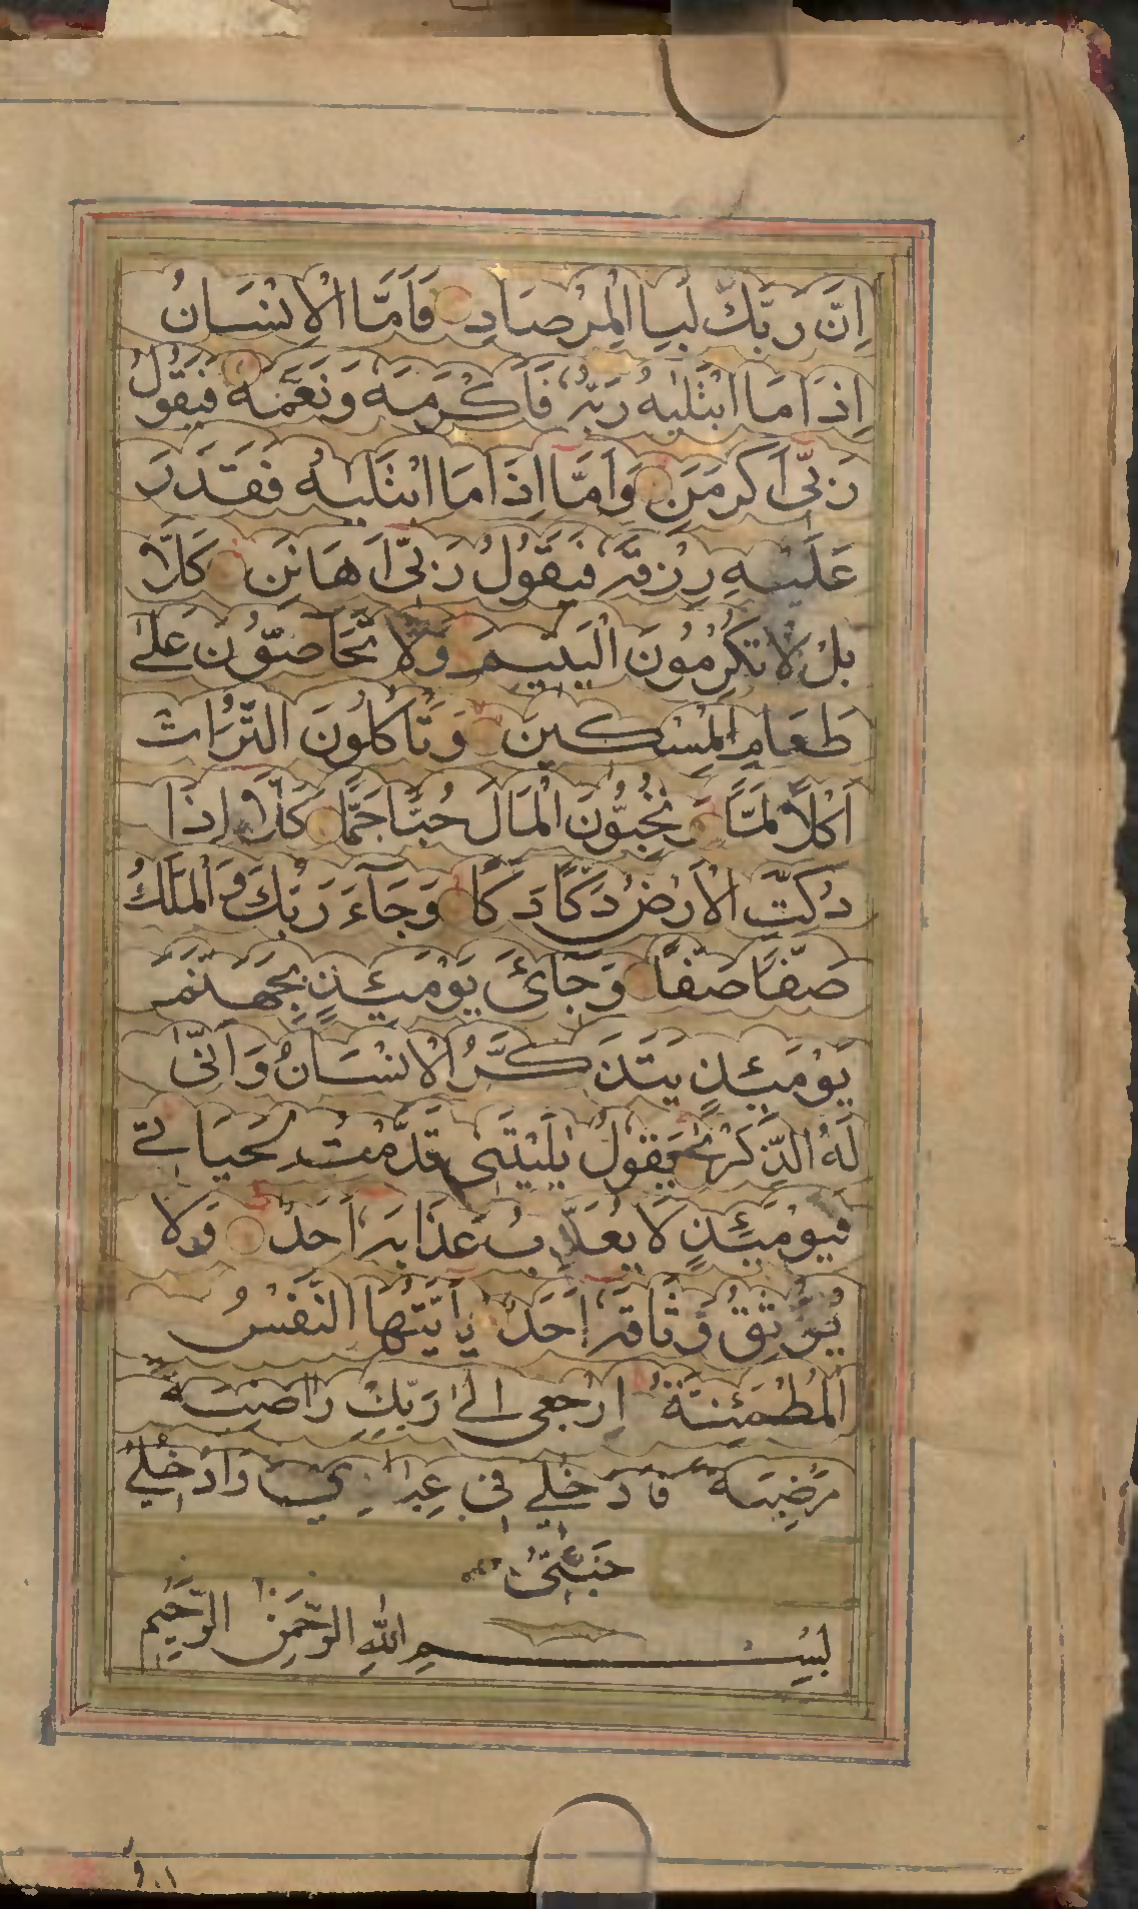 اِنَّ رَبَّكَ لَبِا الْمِرْصَادِ فَاَمَّا الْاِنْسَانُ
اِذَا مَا ابْتَلٰيهُ رَبُّهُ فَاَكْرَمَهُ وَنَعَّمَهُ فَيَقُوْلُ
رَبّىٓ اَكْرَمَنِ وَاَمَّا اِذَا مَا ابْتَلٰيهُ فَقَدَرَ
عَلَيْهِ رِزْقَهُ فَيَقُوْلُ رَبّىٓ اَهَانَنِ كَلَّا
بَلْ لَا تُكْرِمُوْنَ الْيَتِيْمَ وَلَا تَحَآضُّوْنَ عَلٰى
طَعَامِ الْمِسْكِيْنِ وَتَأْكُلُوْنَ التُّرَاثَ
اَكْلًا لَمًّا وَ تُحِبُّوْنَ الْمَالَ حُبًّا جَمًّا كَلَّا اِذَا
دُكَّتِ الْاَرْضُ دَكًّا دَكًّا وَجَآءَ رَبُّكَ وَالْمَلَكُ
صَفًّا صَفًّا وَجَآئَ يَوْمَئِذٍ بِجَهَنَّمَ
يَوْمَئِذٍ يَتَذَكَّرُ الْاِنْسَانُ وَاَنّٰى
لَهُ الذِّكْرٰى يَقُوْلُ يٰلَيْتَنِى قَدَّمْتُ لِحَيَاتِى
فَيَوْمَئِذٍ لَا يُعَذِّبُ عَذَابَهُ اَحَدٌ وَلَا
يُوْثِقُ وَثَاقَهُ اَحَدٌ يٰاَيَّتُهَا النَّفْسُ
الْمُطْمَئِنَّةُ اِرْجِعِى اِلٰى رَبِّكِ رَاضِيَةً
مَرْضِيَةً فَادْخُلِى فِى عِبَادِي وَادْخُلِى
جَنَّتِى
بِسْمِ اللّٰهِ الرَّحْمٰنِ الرَّحِيْمِ